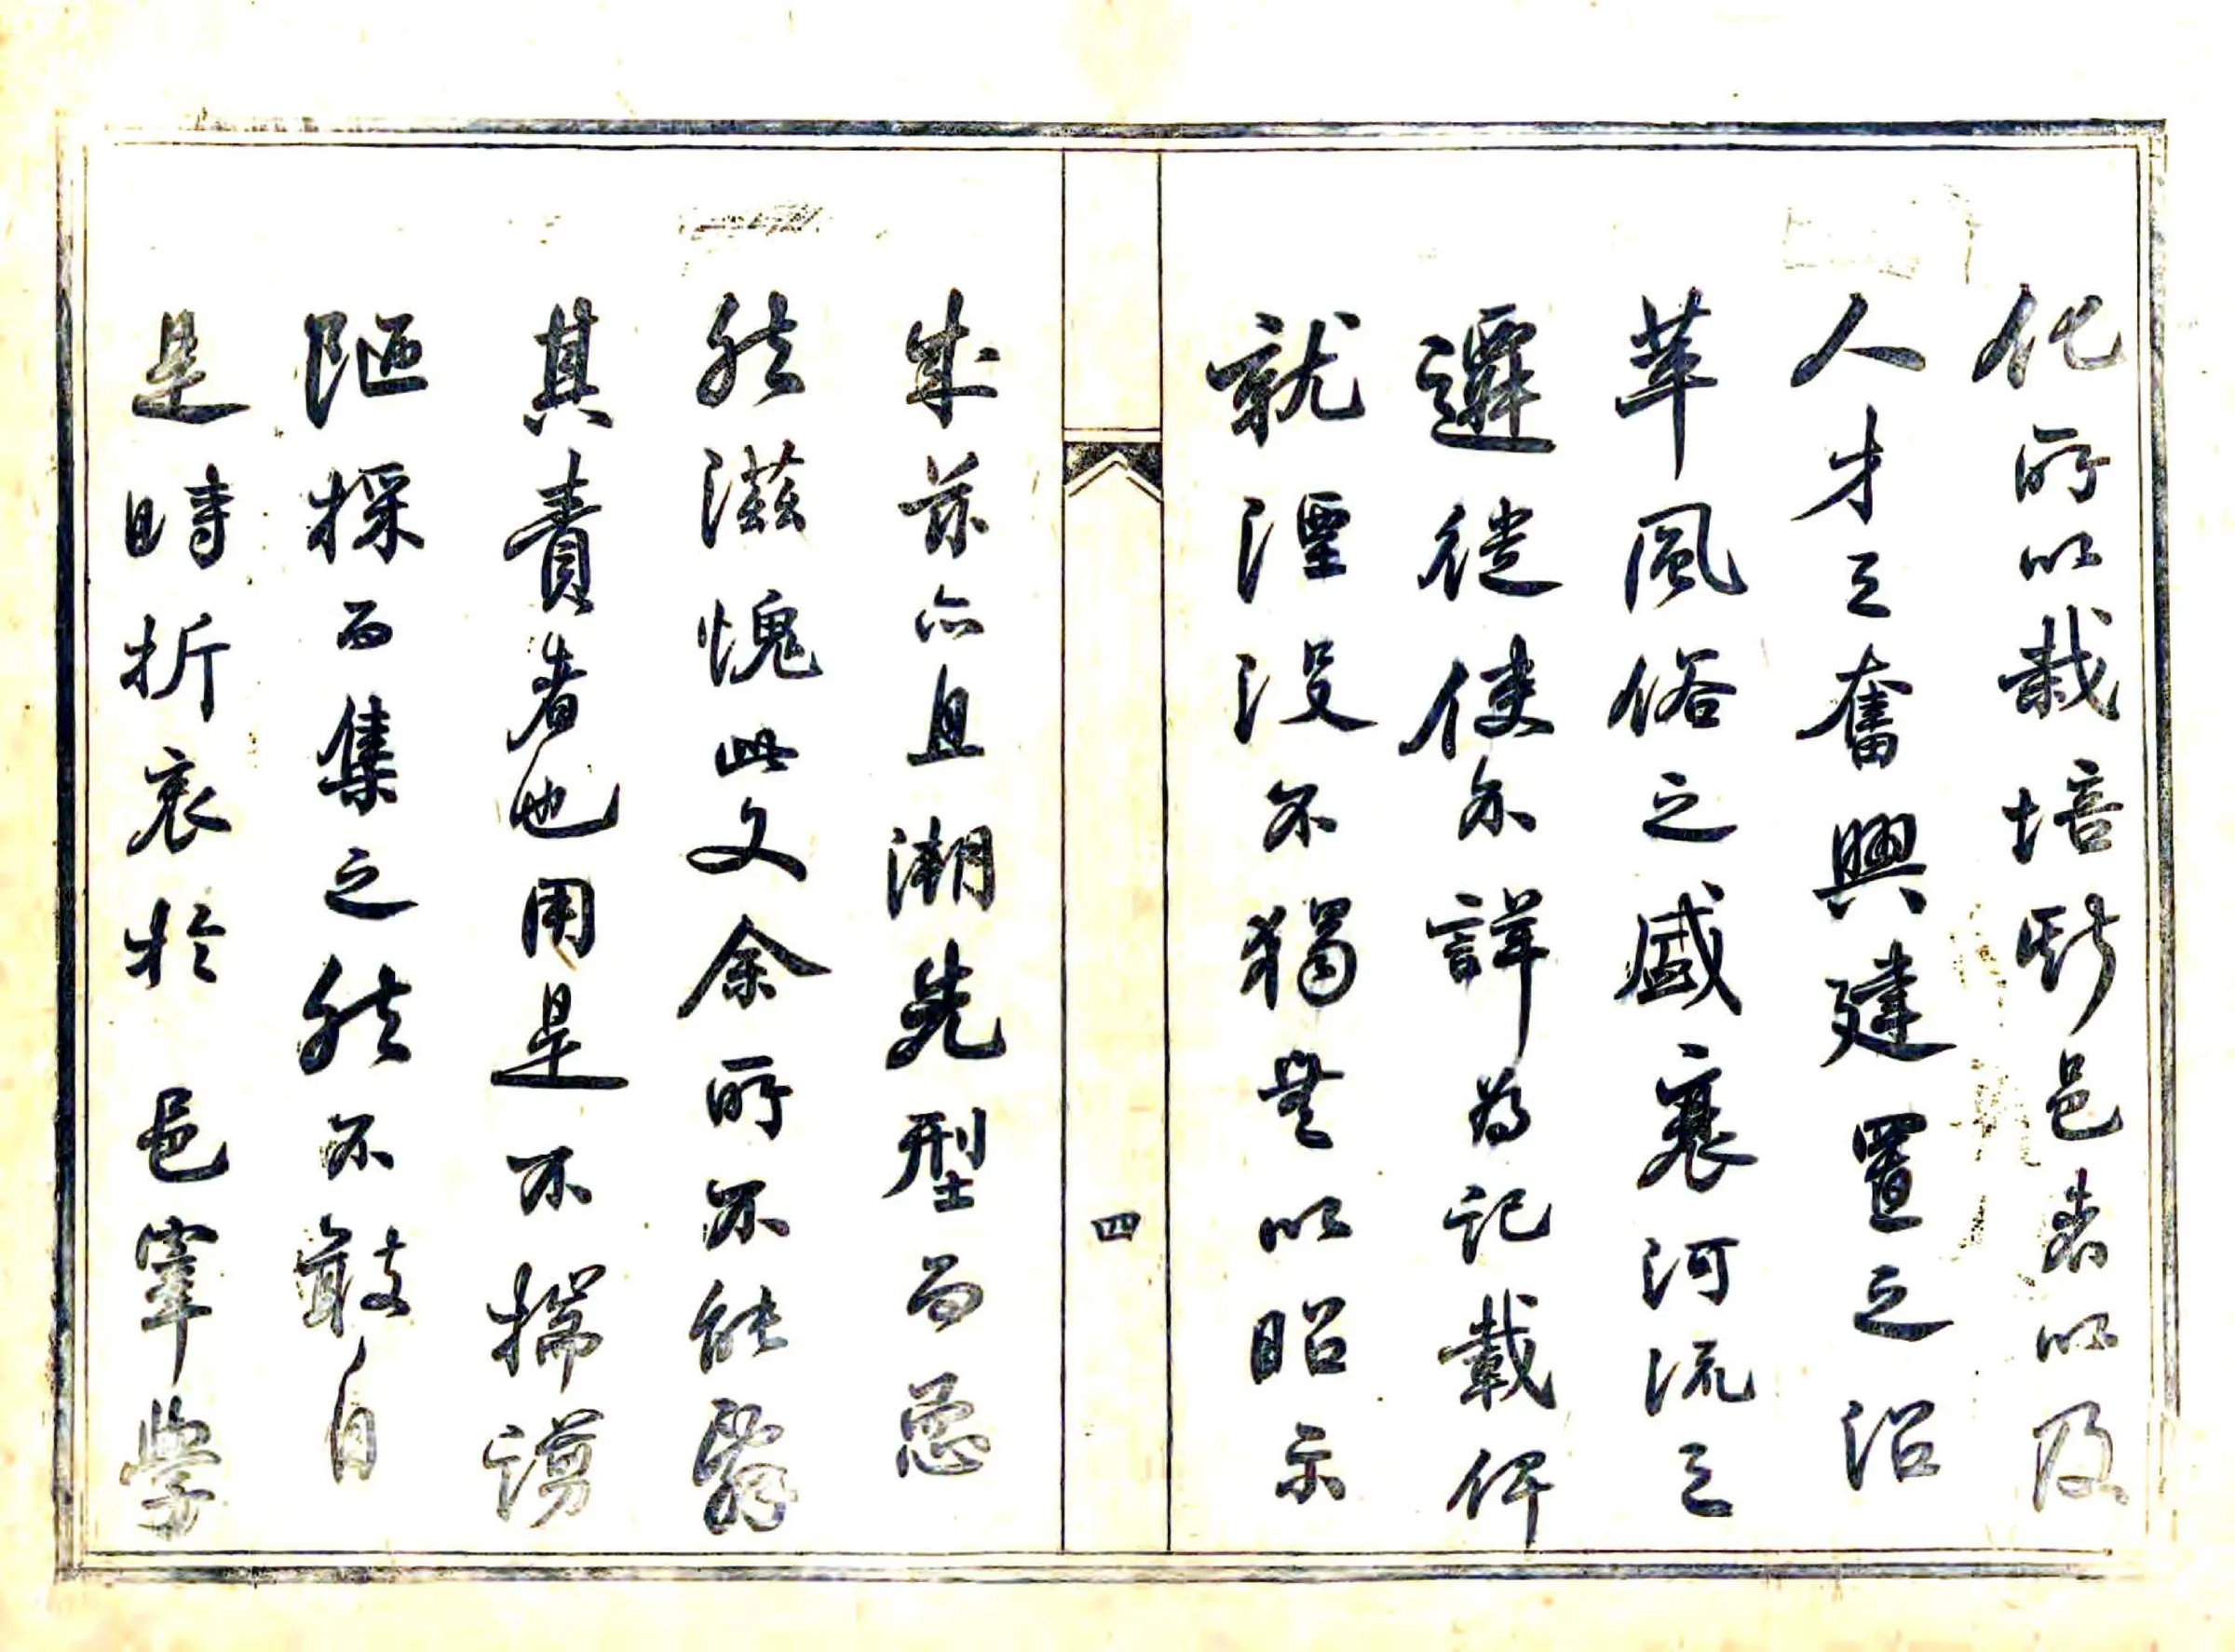 化所以栽培斯邑者以及
人才之奮興建置之沿
革風俗之盛衰河流之
遷徙使不詳為記載俾
就湮没不獨無以昭示
來茲亦且溯先型而忽
然滋愧此文余所不能辭
其責者也用是不揣謭
陋採而集之然不敢自
是時折衷於 邑宰學
四